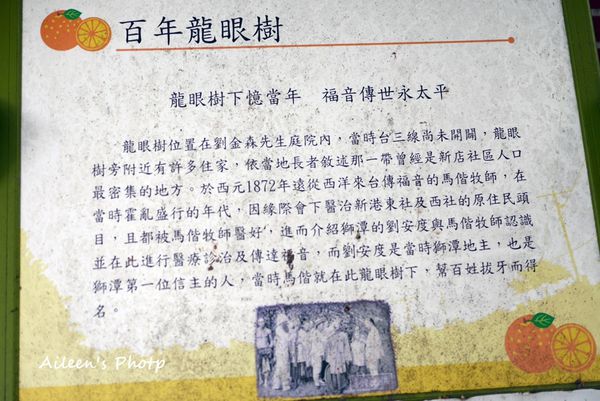 百年龍眼樹
龍眼樹下憶當年　福音傳世永太平
龍眼樹位置在劉金森先生庭院內，當時台三線尚未開闢，龍眼
樹旁附近有許多住家，依當地長者敘述那一帶曾經是新店社區人口
最密集的地方。於西元1872年遠從西洋來台傳福音的馬偕牧師，在
當時霍亂盛行的年代，因緣際會下醫治新港東社及西社的原住民頭
目，且都被馬偕牧師醫好，進而介紹獅潭的劉安度與馬偕牧師認識
並在此進行醫療診治及傳達福音，而劉安度是當時獅潭地主，也是
獅潭第一位信主的人，當時馬偕就在此龍眼樹下，幫百姓拔牙而得
名。
Aileen's Photp